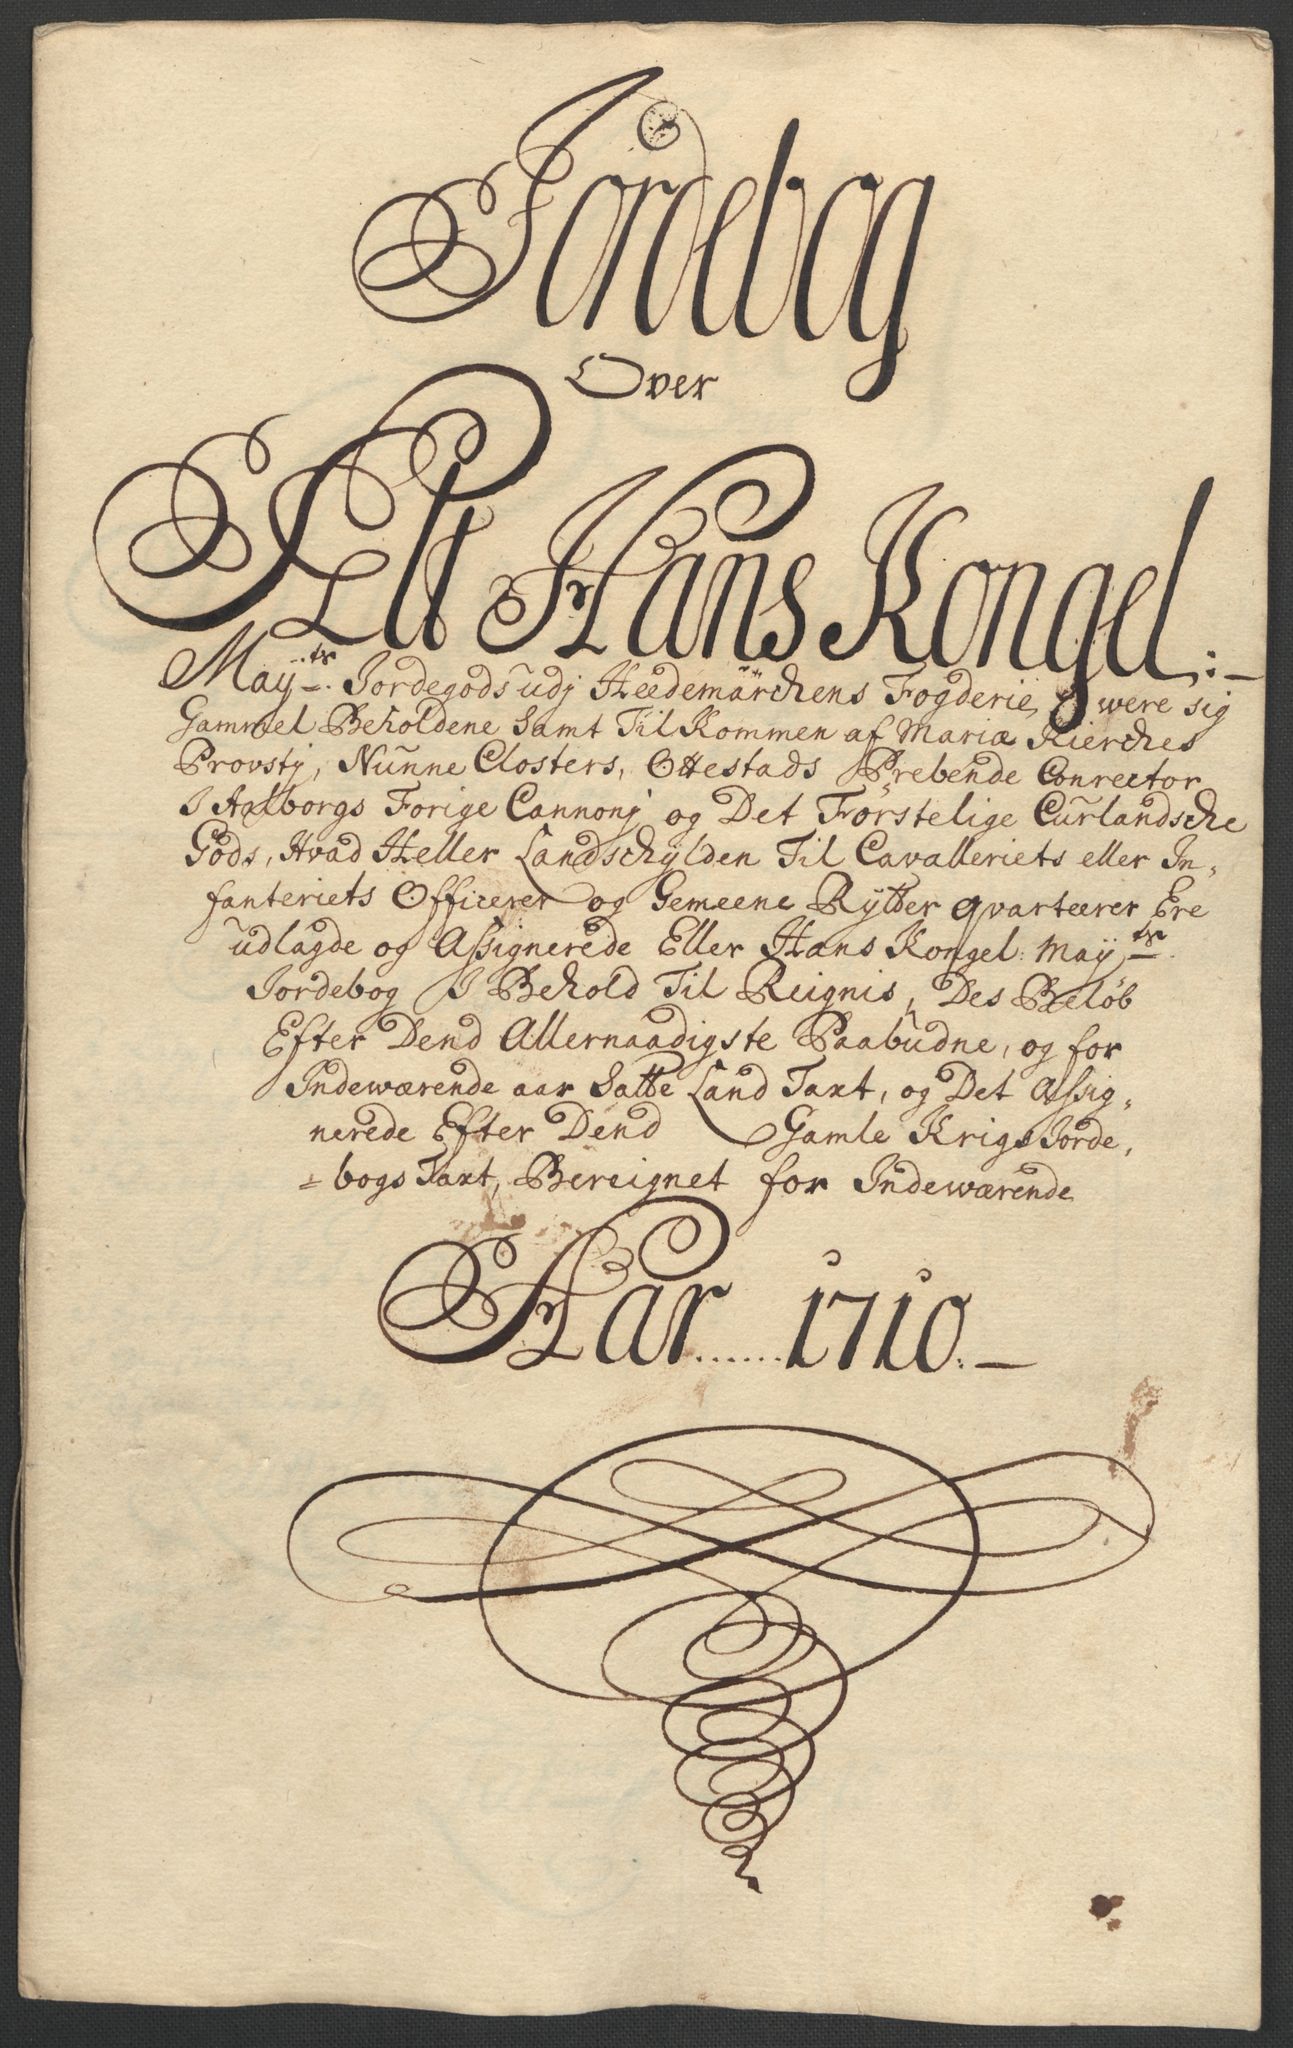 Jordebog
Over
Alt Hans Kongel:
Mayts. Jordegods udj Heedemarchens Fogderie, were sig
Gammel Beholdene Samt Til Kommen af Mariæ Kierches
Provstj, Nunne Closters, Ottestads Prebende Conrector
I Aalborgs Forige Cannonj, og Det Førstelige Curlandsche
Gods, Hvad Heller Landschylden Til Cavalleriets eller In-
fanteriets Officerer og Gemeene Rytter qvarteerer Ere
udlagde og Assignerede Eller Hans Kongel: Mayts.
Jordebog I Behold Til Reignis, Des Beløb
Efter Dend Allernaadigste Paabudne, og for
Indewærende aar Satte Land Taxt, og Det Assig-
nerede Efter Dend Gamle Krigs Jorde,
=bogs Taxt, Bereignet for Indewærende
Aar......1710.